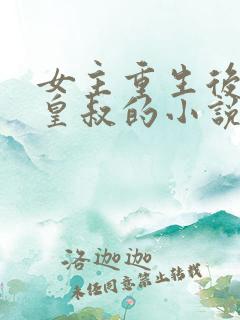 女主重生後
皇叔的小說
洛迦迦
未经同意禁止转载